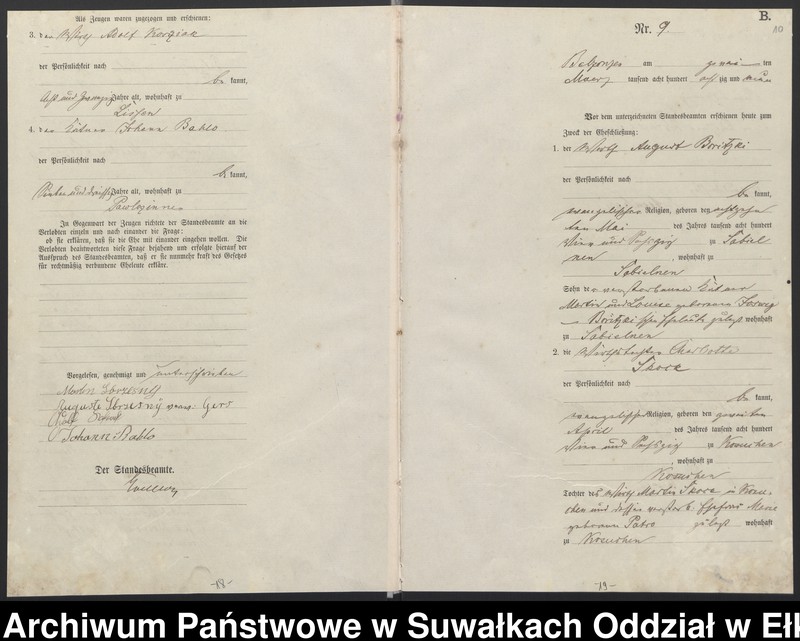 Als Zeugen waren zugezogen und erschienen:
3. der Wirth Adolf
der Persönlichkeit nach
be kannt,
acht und zwanzig Jahre alt, wohnhaft zu
Lissen
4. der Käthner Johann Bahlo
der Persönlichkeit nach
be kannt,
sieben und dreißig Jahre alt, wohnhaft zu
In Gegenwart der Zeugen richtete der Standesbeamte an die
Verlobten einzeln und nach einander die Frage:
ob sie erklären, daß sie die Ehe mit einander eingehen wollen. Die
Verlobten beantworteten diese Frage bejahend und erfolgte hierauf der
Ausspruch des Standesbeamten, daß er sie nunmehr kraft des Gesetzes
für rechtmäßig verbundene Eheleute erkläre.
Vorgelesen, genehmigt und unterschrieben
Martin
Auguste
Johann Bahlo
Der Standesbeamte.
-18-
B.
10
Nr. 9
am zwei ten
Maerz tausend acht hundert acht zig und neun
Vor dem unterzeichneten Standesbeamten erschienen heute zum
Zweck der Eheschließung:
1. der Wirth August Boritzki
der Persönlichkeit nach
be kannt,
evangelischer Religion, geboren den achtzehn
ten Mai des Jahres tausend acht hundert
vier und sechszig zu Sabiel
nen, wohnhaft zu
Sabielnen
Sohn der verstorbenen Käthner
Martin und Louise geborenen
Boritzkischen Eheleute zuletzt wohnhaft
zu Sabielnen
2. die Wirthstochter Charlotte
Skora
der Persönlichkeit nach
be kannt,
evangelischer Religion, geboren den zweiten
April des Jahres tausend acht hundert
vier und sechszig zu
, wohnhaft zu
Tochter des Wirth Martin Skora in
und dessen verstorb. Ehefrau Marie
geborenen zuletzt wohnhaft
zu
-19-
Archiwum Państwowe w Suwałkach Oddział w Eł